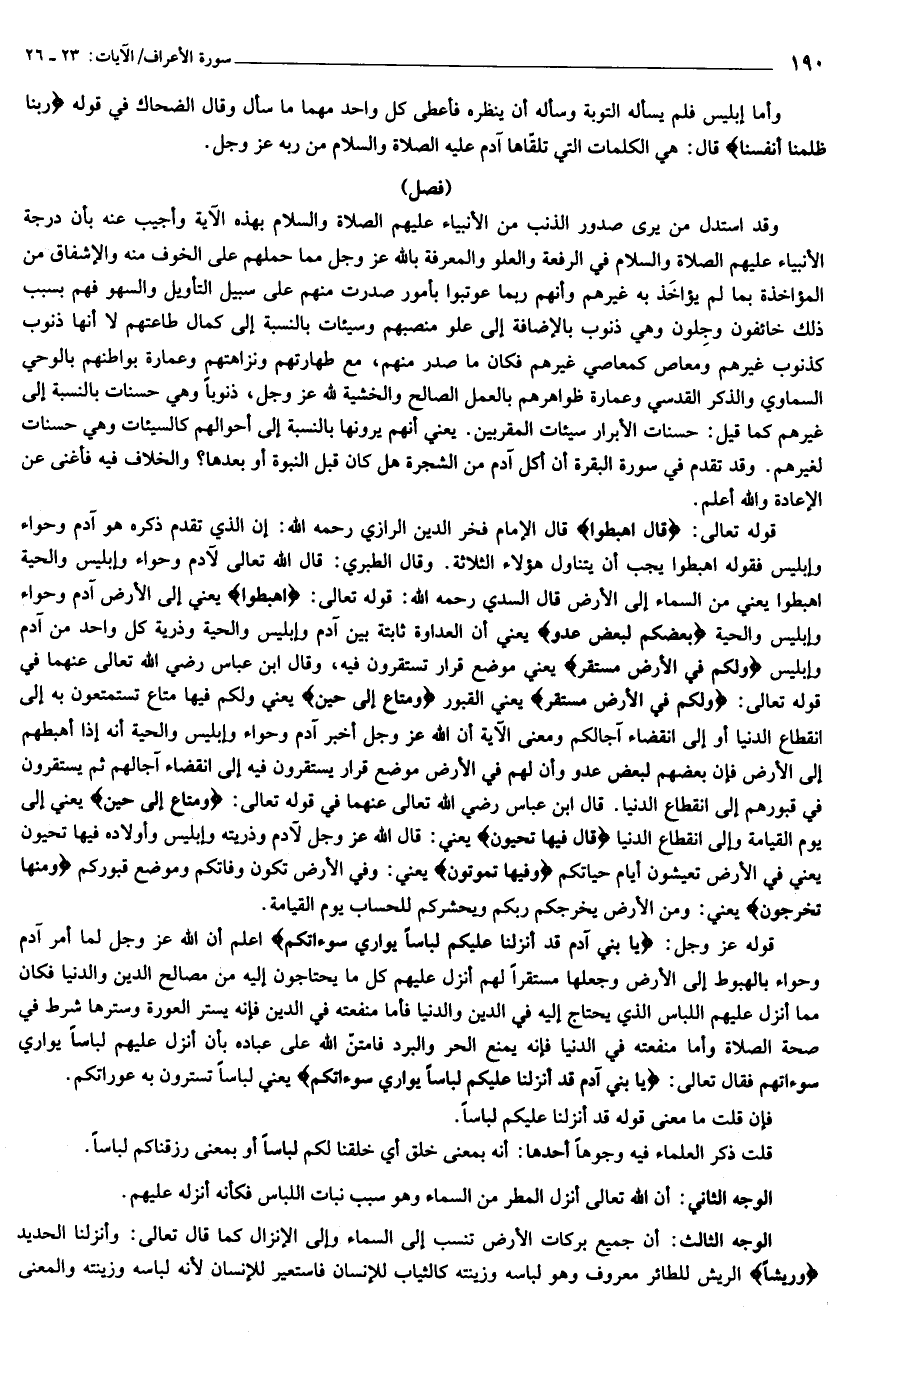 ١٩٠ سورة الأعراف/ الآيات: ٢٣ ـ ٢٦
وأما إبليس فلم يسأله التوبة وسأله أن ينظره فأعطى كل واحد مهما ما سأل وقال الضحاك في قوله ﴿ربنا
ظلمنا أنفسنا﴾ قال: هي الكلمات التي تلقّاها آدم عليه الصلاة والسلام من ربه عز وجل.
(فصل)
وقد استدل من يرى صدور الذنب من الأنبياء عليهم الصلاة والسلام بهذه الآية وأجيب عنه بأن درجة
الأنبياء عليهم الصلاة والسلام في الرفعة والعلو والمعرفة بالله عز وجل مما حملهم على الخوف منه والإشفاق من
المؤاخذة بما لم يؤاخَذ به غيرهم وأنهم ربما عوتبوا بأمور صدرت منهم على سبيل التأويل والسهو فهم بسبب
ذلك خائفون وجِلون وهي ذنوب بالإضافة إلى علو منصبهم وسيئات بالنسبة إلى كمال طاعتهم لا أنها ذنوب
كذنوب غيرهم ومعاص كمعاصي غيرهم فكان ما صدر منهم، مع طهارتهم ونزاهتهم وعمارة بواطنهم بالوحي
السماوي والذكر القدسي وعمارة ظواهرهم بالعمل الصالح والخشية لله عز وجل، ذنوباً وهي حسنات بالنسبة إلى
غيرهم كما قيل: حسنات الأبرار سيئات المقربين. يعني أنهم يرونها بالنسبة إلى أحوالهم كالسيئات وهي حسنات
لغيرهم. وقد تقدم في سورة البقرة أن أكل آدم من الشجرة هل كان قبل النبوة أو بعدها؟ والخلاف فيه فأغنى عن
الإعادة والله أعلم.
قوله تعالى: ﴿قال اهبطوا﴾ قال الإمام فخر الدين الرازي رحمه الله: إن الذي تقدم ذكره هو آدم وحواء
وإبليس فقوله اهبطوا يجب أن يتناول هؤلاء الثلاثة. وقال الطبري: قال الله تعالى لآدم وحواء وإبليس والحية
اهبطوا يعني من السماء إلى الأرض قال السدي رحمه الله: قوله تعالى: ﴿اهبطوا﴾ يعني إلى الأرض آدم وحواء
وإبليس والحية ﴿بعضكم لبعض عدو﴾ يعني أن العداوة ثابتة بين آدم وإبليس والحية وذرية كل واحد من آدم
وإبليس ﴿ولكم في الأرض مستقر﴾ يعني موضع قرار تستقرون فيه، وقال ابن عباس رضي الله تعالى عنهما في
قوله تعالى: ﴿ولكم في الأرض مستقر﴾ يعني القبور ﴿ومتاع إلى حين﴾ يعني ولكم فيها متاع تستمتعون به إلى
انقطاع الدنيا أو إلى انقضاء آجالكم ومعنى الآية أن الله عز وجل أخبر آدم وحواء وإبليس والحية أنه إذا أهبطهم
إلى الأرض فإن بعضهم لبعض عدو وأن لهم في الأرض موضع قرار يستقرون فيه إلى انقضاء آجالهم ثم يستقرون
في قبورهم إلى انقطاع الدنيا. قال ابن عباس رضي الله تعالى عنهما في قوله تعالى: ﴿ومتاع إلى حين﴾ يعني إلى
يوم القيامة وإلى انقطاع الدنيا ﴿قال فيها تحيون﴾ يعني: قال الله عز وجل لآدم وذريته وإبليس وأولاده فيها تحيون
يعني في الأرض تعيشون أيام حياتكم ﴿وفيها تموتون﴾ يعني: وفي الأرض تكون وفاتكم وموضع قبوركم ﴿ومنها
تخرجون﴾ يعني: ومن الأرض يخرجكم ربكم ويحشركم للحساب يوم القيامة.
قوله عز وجل: ﴿يا بني آدم قد أنزلنا عليكم لباساً يواري سوءاتكم﴾ اعلم أن الله عز وجل لما أمر آدم
وحواء بالهبوط إلى الأرض وجعلها مستقراً لهم أنزل عليهم كل ما يحتاجون إليه من مصالح الدين والدنيا فكان
مما أنزل عليهم اللباس الذي يحتاج إليه في الدين والدنيا فأما منفعته في الدين فإنه يستر العورة وسترها شرط في
صحة الصلاة وأما منفعته في الدنيا فإنه يمنع الحر والبرد فامتنّ الله على عباده بأن أنزل عليهم لباساً يواري
سوءاتهم فقال تعالى: ﴿يا بني آدم قد أنزلنا عليكم لباساً يواري سوءاتكم﴾ يعني لباساً تسترون به عوراتكم.
فإن قلت ما معنى قوله قد أنزلنا عليكم لباساً.
قلت ذكر العلماء فيه وجوهاً أحدها: أنه بمعنى خلق أي خلقنا لكم لباساً أو بمعنى رزقناكم لباساً.
الوجه الثاني: أن الله تعالى أنزل المطر من السماء وهو سبب نبات اللباس فكأنه أنزله عليهم.
الوجه الثالث: أن جميع بركات الأرض تنسب إلى السماء وإلى الإنزال كما قال تعالى: وأنزلنا الحديد
﴿وريشاً﴾ الريش للطائر معروف وهو لباسه وزينته كالثياب للإنسان فاستعير للإنسان لأنه لباسه وزينته والمعنى